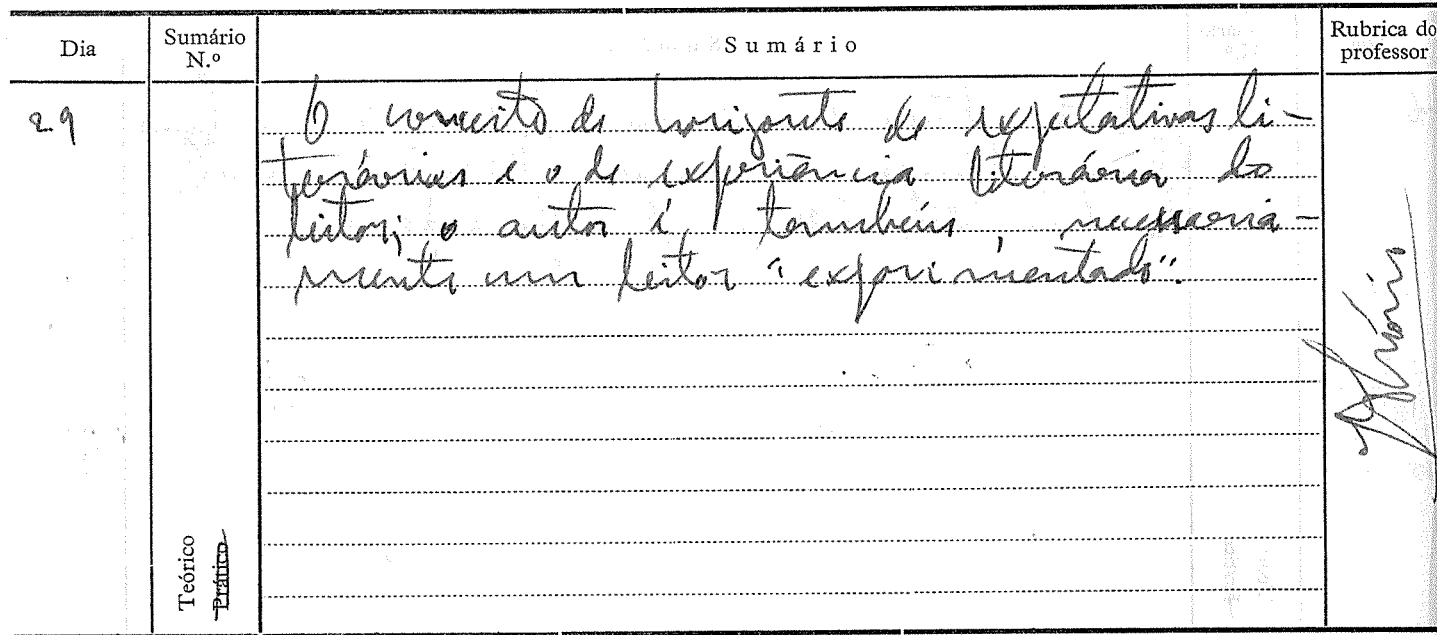 Dia
Sumário N.º
Sumário
Rubrica do professor
29
O conceito de horizonte de expectativas li-
terárias e o de experiência literária do
leitor; o autor é, também, necessaria-
mente um leitor "experimentado".
Teórico
Prático